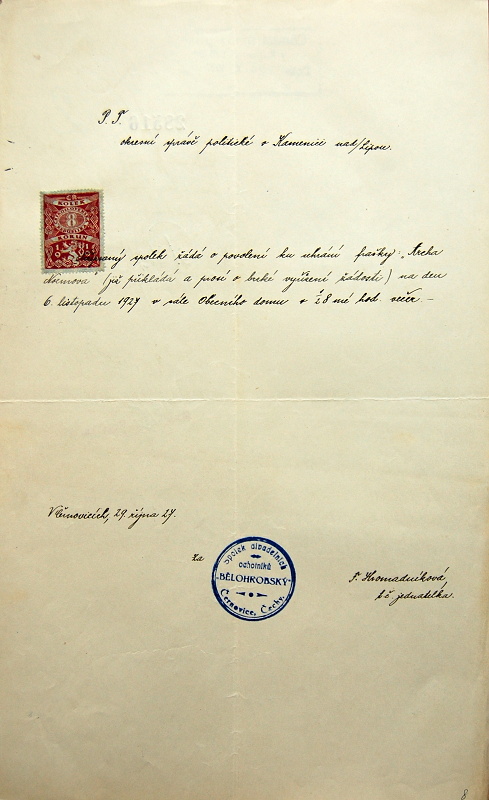 P. T.
okresní správě politické v Kamenici nad/Lipou.
KOLEK
8
KORUN
spolek žádá o povolení ku uhrání frašky: „Archa
Noemova" (již přikládá a prosí o brzké vyřízení žádosti) na den
6. listopadu 1927 v sále Obecního domu v ½8 mé hod. večer. —
V Černovicích, 29. října 27.
za
Spolek divadelních
ochotníků
„BĚLOHROBSKÝ"
Černovice, Čechy.
F. Hromadníková,
t. č. jednatelka.
8